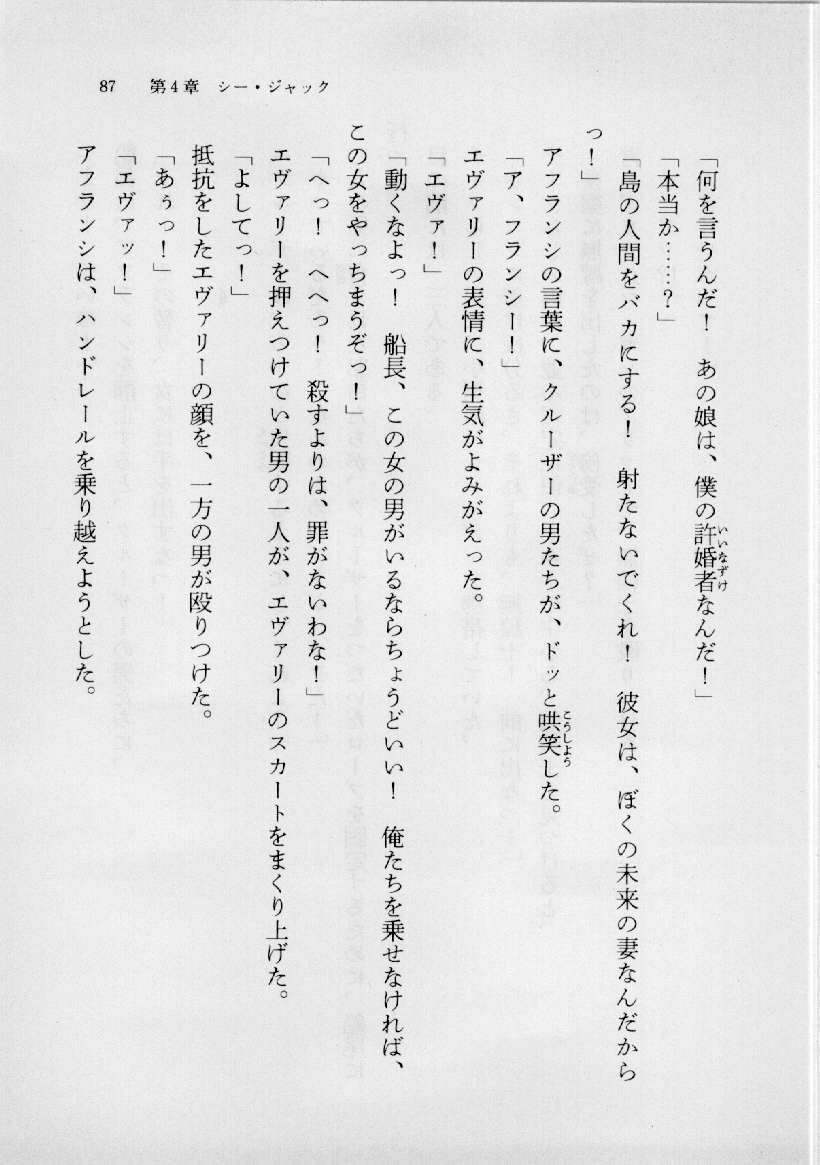 87　第4章　シー・ジャック
「何を言うんだ！　あの娘は、僕の許婚者なんだ！」
いいなずけ
「本当か……？」
「島の人間をバカにする！　射たないでくれ！　彼女は、ぼくの未来の妻なんだから
っ！」
アフランシの言葉に、クルーザーの男たちが、ドッと哄笑した。
こうしよう
「ア、フランシー！」
エヴァリーの表情に、生気がよみがえった。
「エヴァ！」
「動くなよっ！　船長、この女の男がいるならちょうどいい！　俺たちを乗せなければ、
この女をやっちまうぞっ！」
「へっ！　へへっ！　殺すよりは、罪がないわな！」
エヴァリーを押えつけていた男の一人が、エヴァリーのスカートをまくり上げた。
「よしてっ！」
抵抗をしたエヴァリーの顔を、一方の男が殴りつけた。
「あぅっ！」
「エヴァッ！」
アフランシは、ハンドレールを乗り越えようとした。